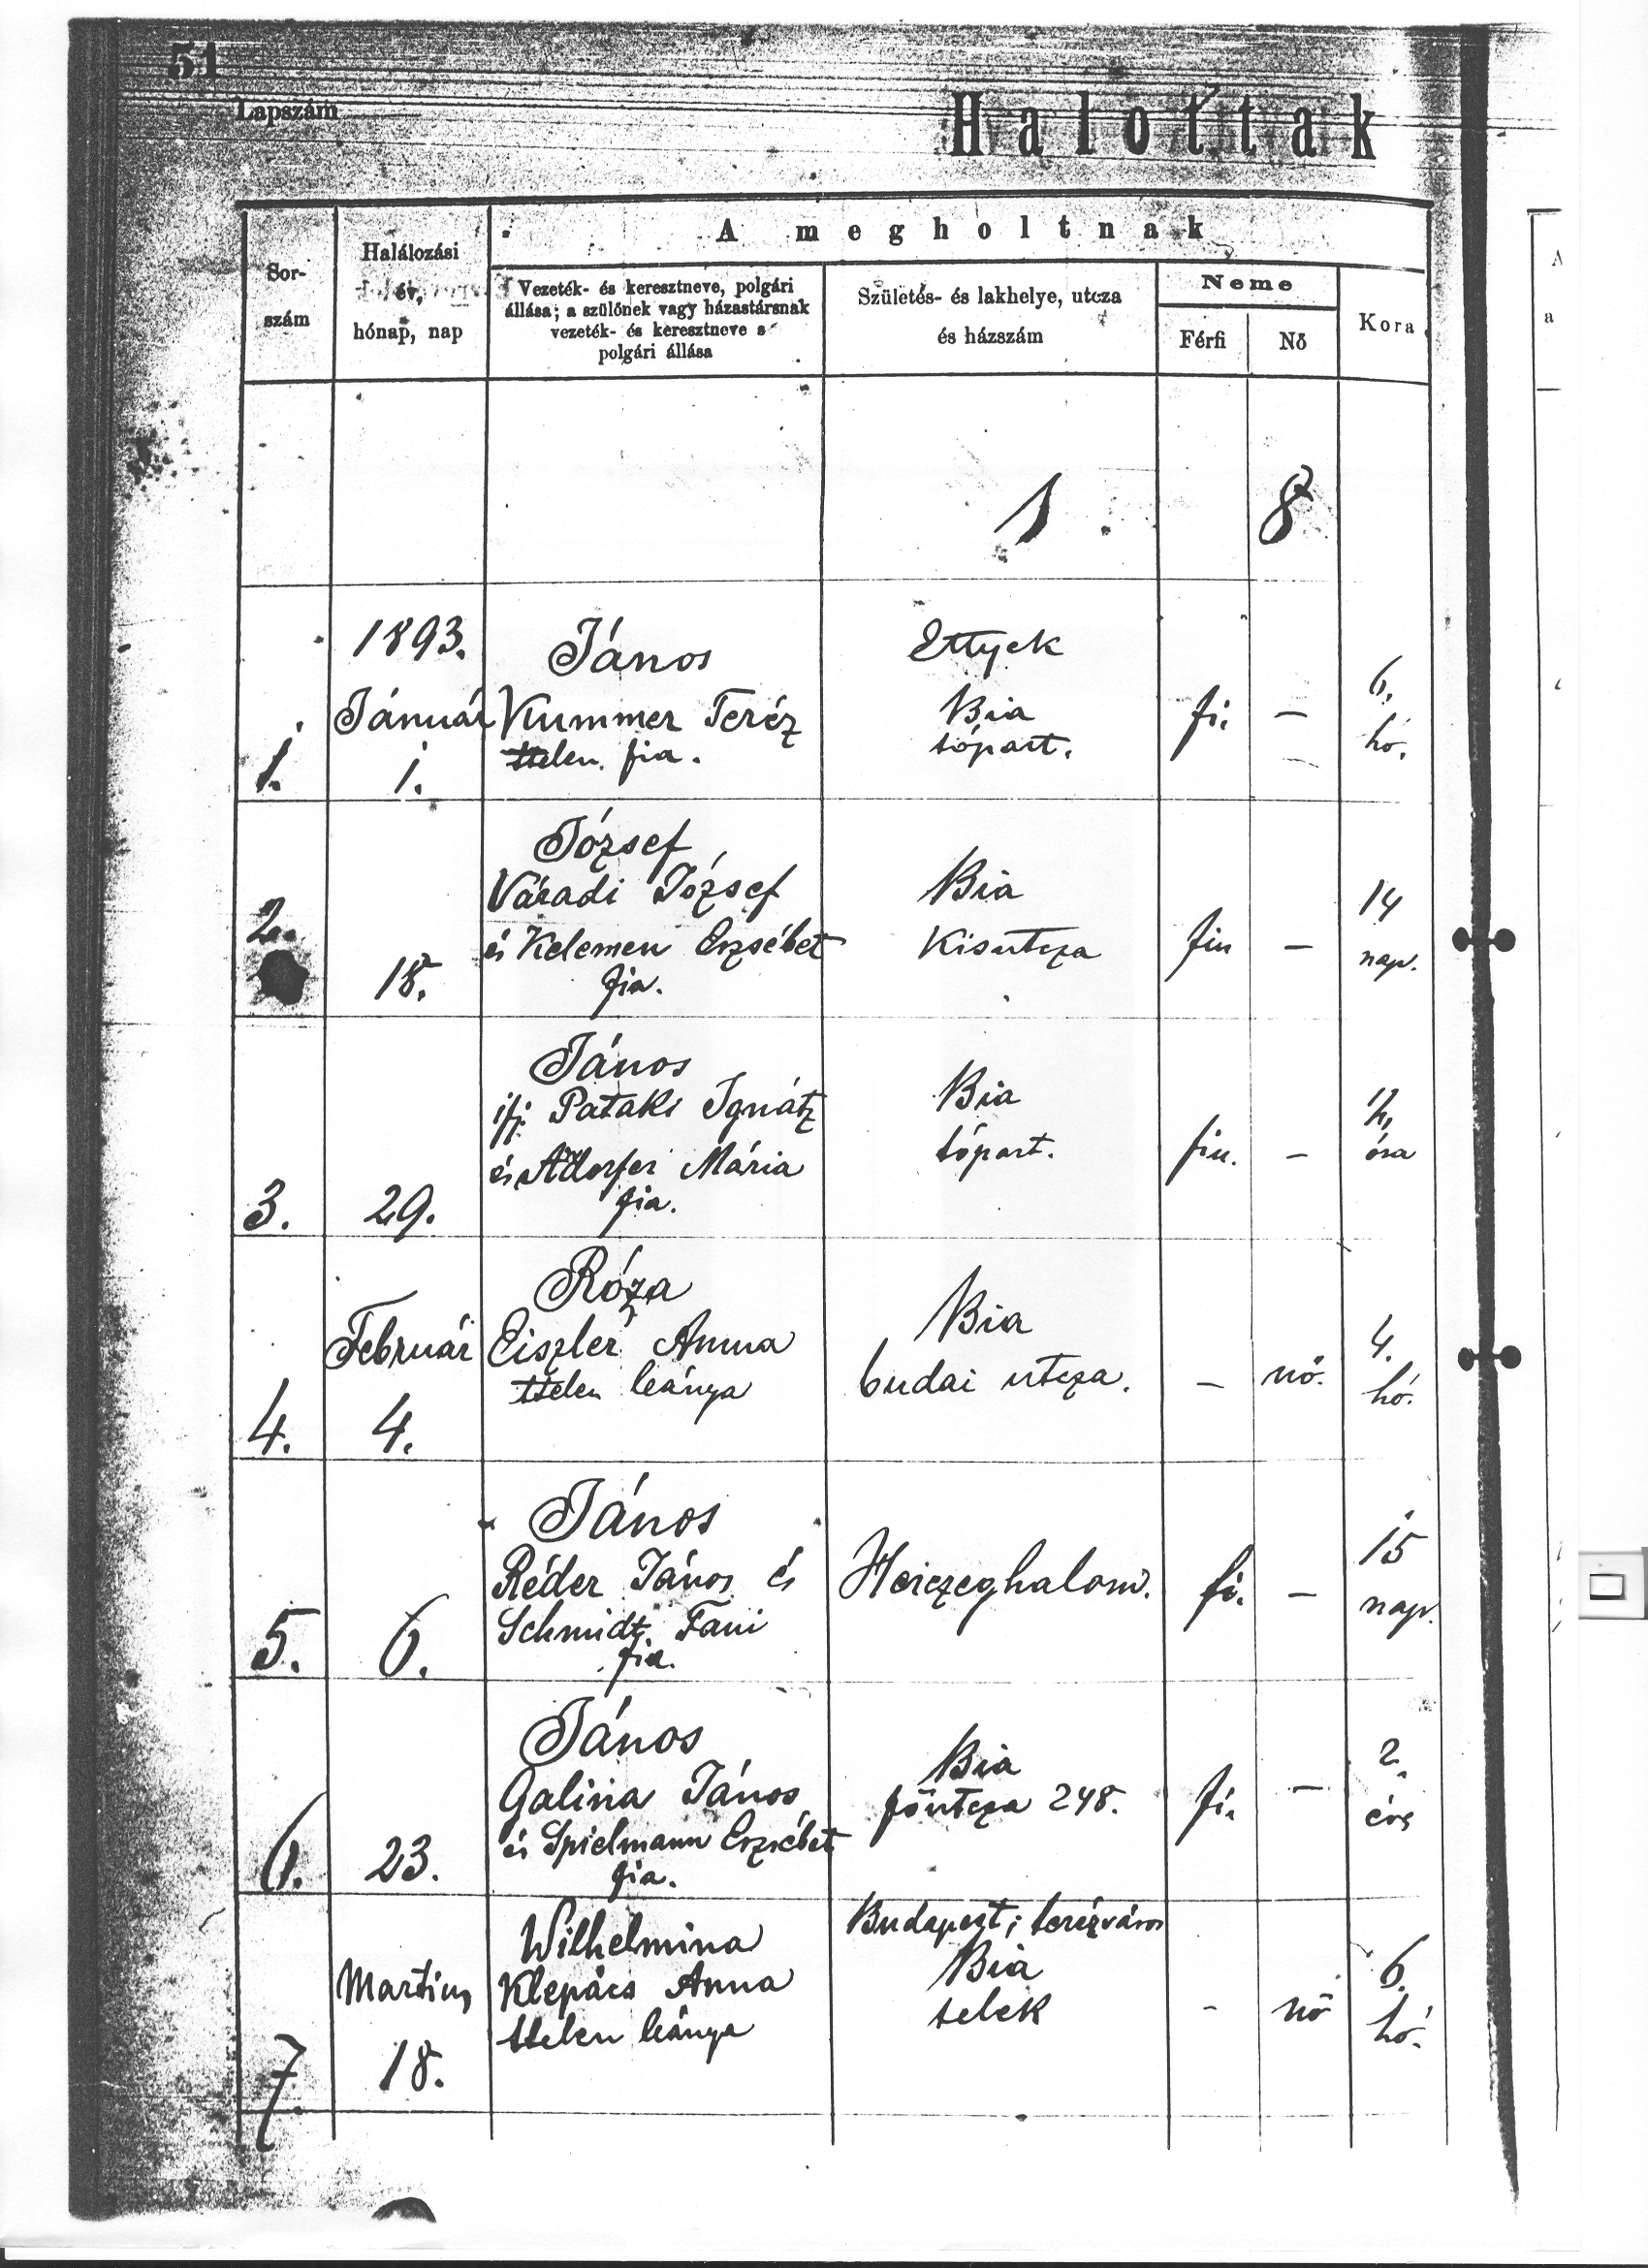 51
Lapszám
Halottak
A megholtnak
Sor-
szám
Halálozási
év,
hónap, nap
Vezeték- és keresztneve, polgári
állása; a szülőnek vagy házastársnak
vezeték- és keresztneve s
polgári állása
Születés- és lakhelye, utcza
és házszám
Neme
Férfi
Nő
Kora
1 8
1893.
Január
1.
1.
János
Kummer Teréz
ttelen fia.
Ettyek
Bia
tópart.
fi.
—
6.
hó.
2.
18.
József
Váradi József
és Kelemen Erzsébet
fia.
Bia
Kisutcza
fiu
—
14
nap.
3.
29.
János
ifj. Pataki Ignátz
és Mária
fia.
Bia
tópart.
fiu.
—
óra
4.
Február
4.
Róza
Eiszler Anna
ttelen leánya
Bia
budai utcza.
—
nő.
4.
hó.
5.
6.
János
Réder János és
Schmidt Fani
fia.
Herczeghalom.
fi.
—
15
nap.
6.
23.
János
Galina János
és Spielmann Erzsébet
fia.
Bia
főutcza 248.
fi.
—
2
éves
7.
Martius
18.
Wilhelmina
Klepács Anna
ttelen leánya
Budapest; terézváros
Bia
telek
-
nő
6.
hó.